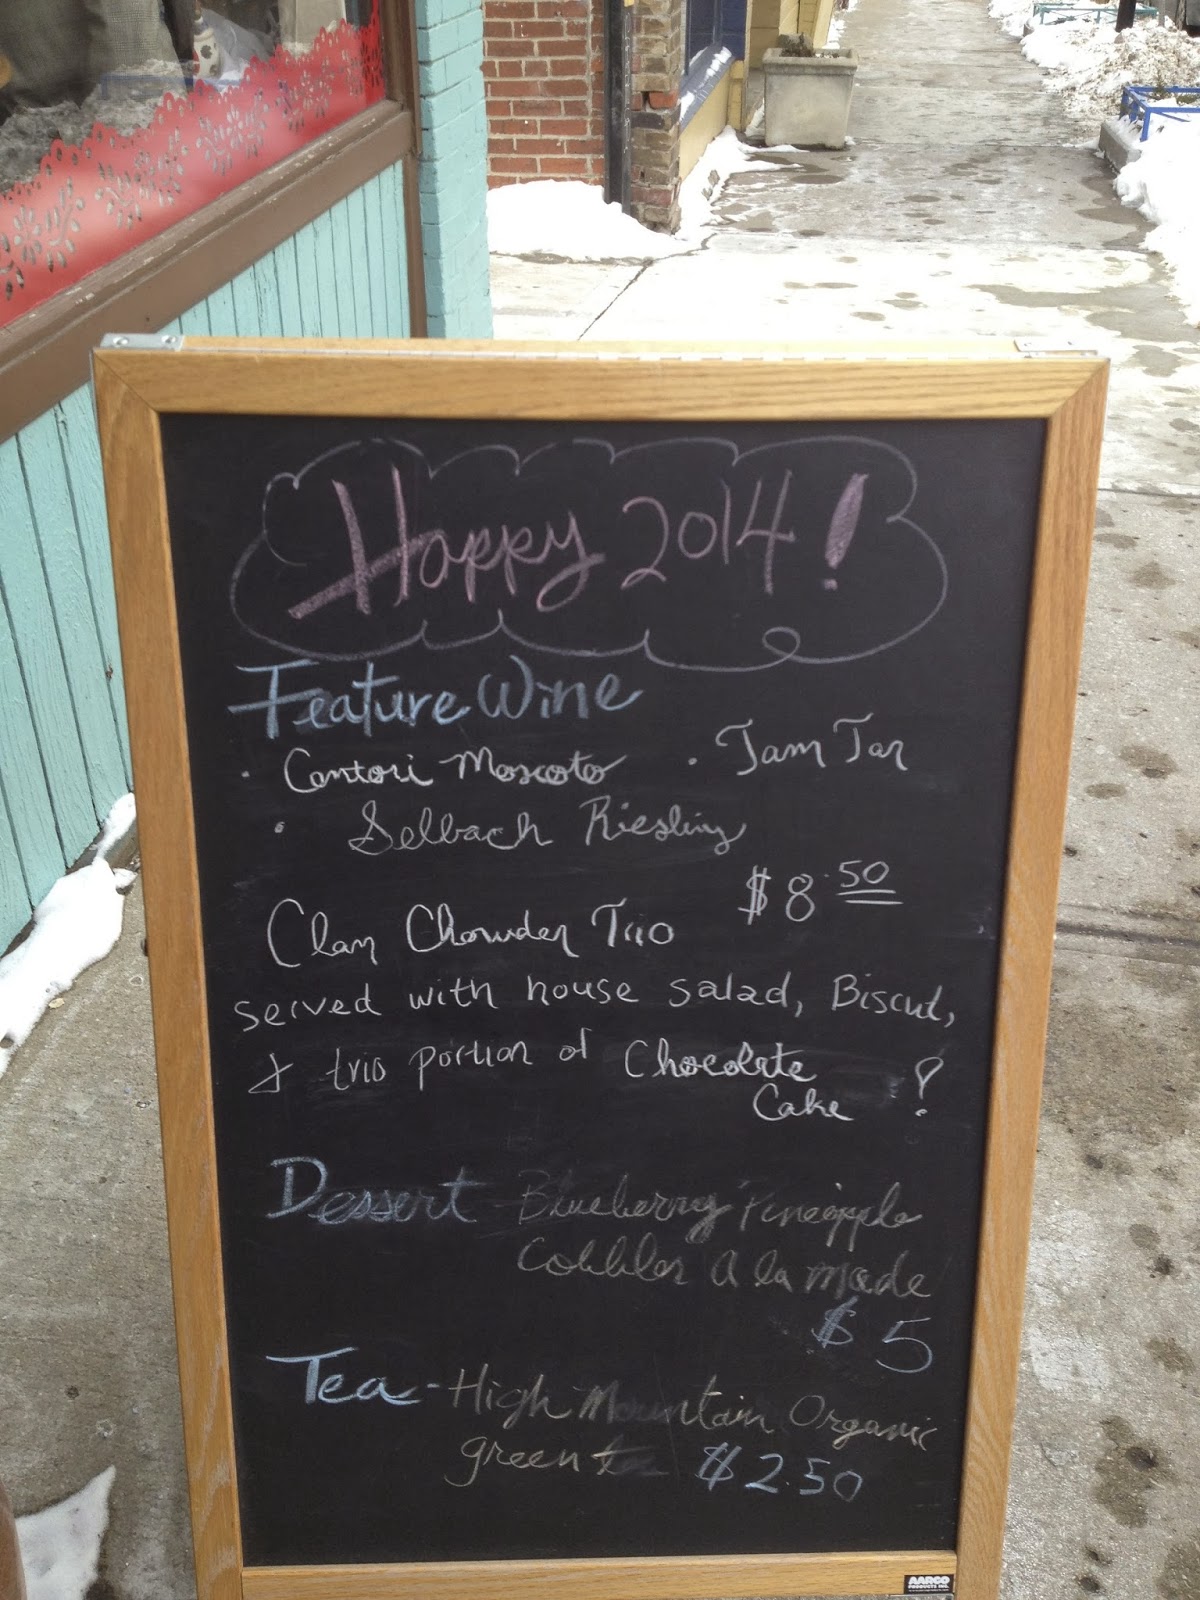 Happy 2014!
Feature Wine
· Cantori Moscoto · Jam Jar
· Selbach Riesling
$8.50
Clam Chowder Trio
served with house salad, Biscut,
& trio portion of Chocolate
Cake !
Dessert - Blueberry Pineapple
Cobbler A la mode
$5
Tea - High Mountain Organic
green $2.50
AARCO
PRODUCTS INC.